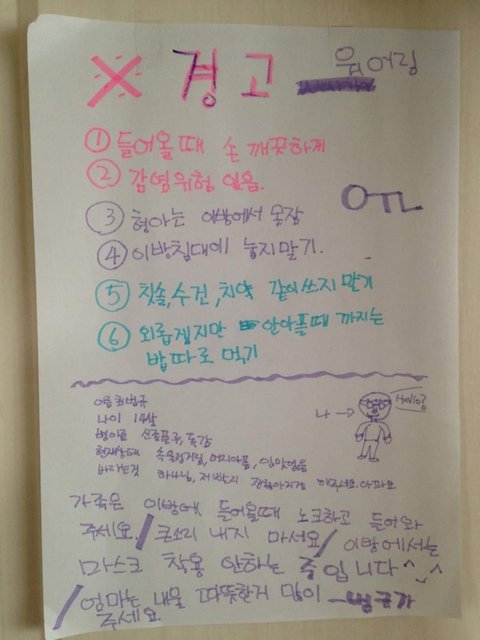 X 경고 워어링
① 들어올때 손 깨끗하게
② 감염위험 있음.
OTL
③ 형아는 이방에서 못잠
④ 이방침대에 눕지말기.
⑤ 칫솔,수건,치약 같이쓰지 말기
⑥ 외롭겠지만 안아플때 까지는
밥따로 먹기
이름 최범규
나이 14살
병이름 신종플루, 독감
현재상태 속울렁거림, 머리아픔, 입맛없음
바라는것 하나님, 제발 건강해지게 해주세요. 아파요
나 →
Hello
가족은 이방에 들어올때 노크하고 들어와
주세요. / 큰소리 내지 마세요 / 이방에서는
마스크 착용 안하는 주입니다 ^-^
/ 엄마는 내물 따뜻한거 많이
주세요.
-범규가